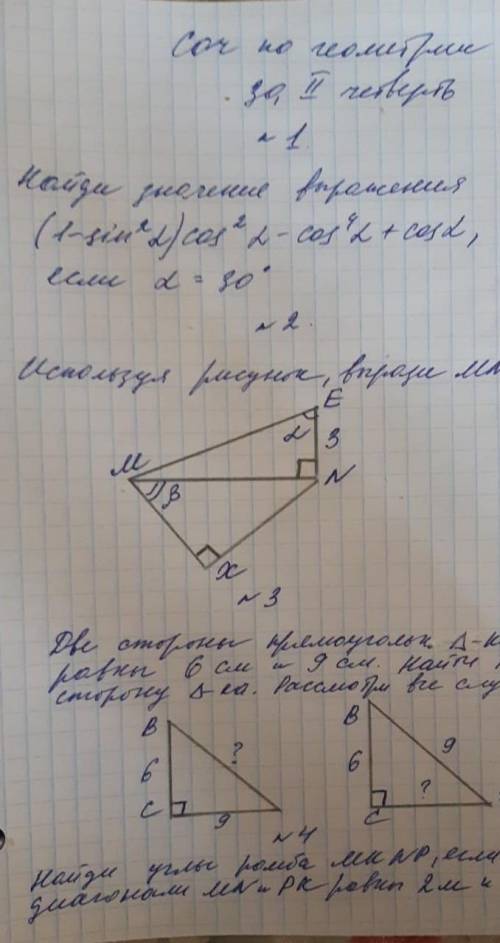 Соч по геометрии
за II четверть
~1
Найди значение выражения
(1-sin²α)cos²α-cos⁴α+cosα,
если α = 30°
~2.
Используя рисунок, вырази MN
E
α 3
M N
β
X
~3
Две стороны прямоугольн. Δ-к
равны 6 см и 9 см. Найти
сторону Δ-ка. Рассмотри все слу
B B
6 ? 6 9
C 9 C ?
~4
Найди углы ромба MKNP, если
диагонали MN и PK равны 2 м и